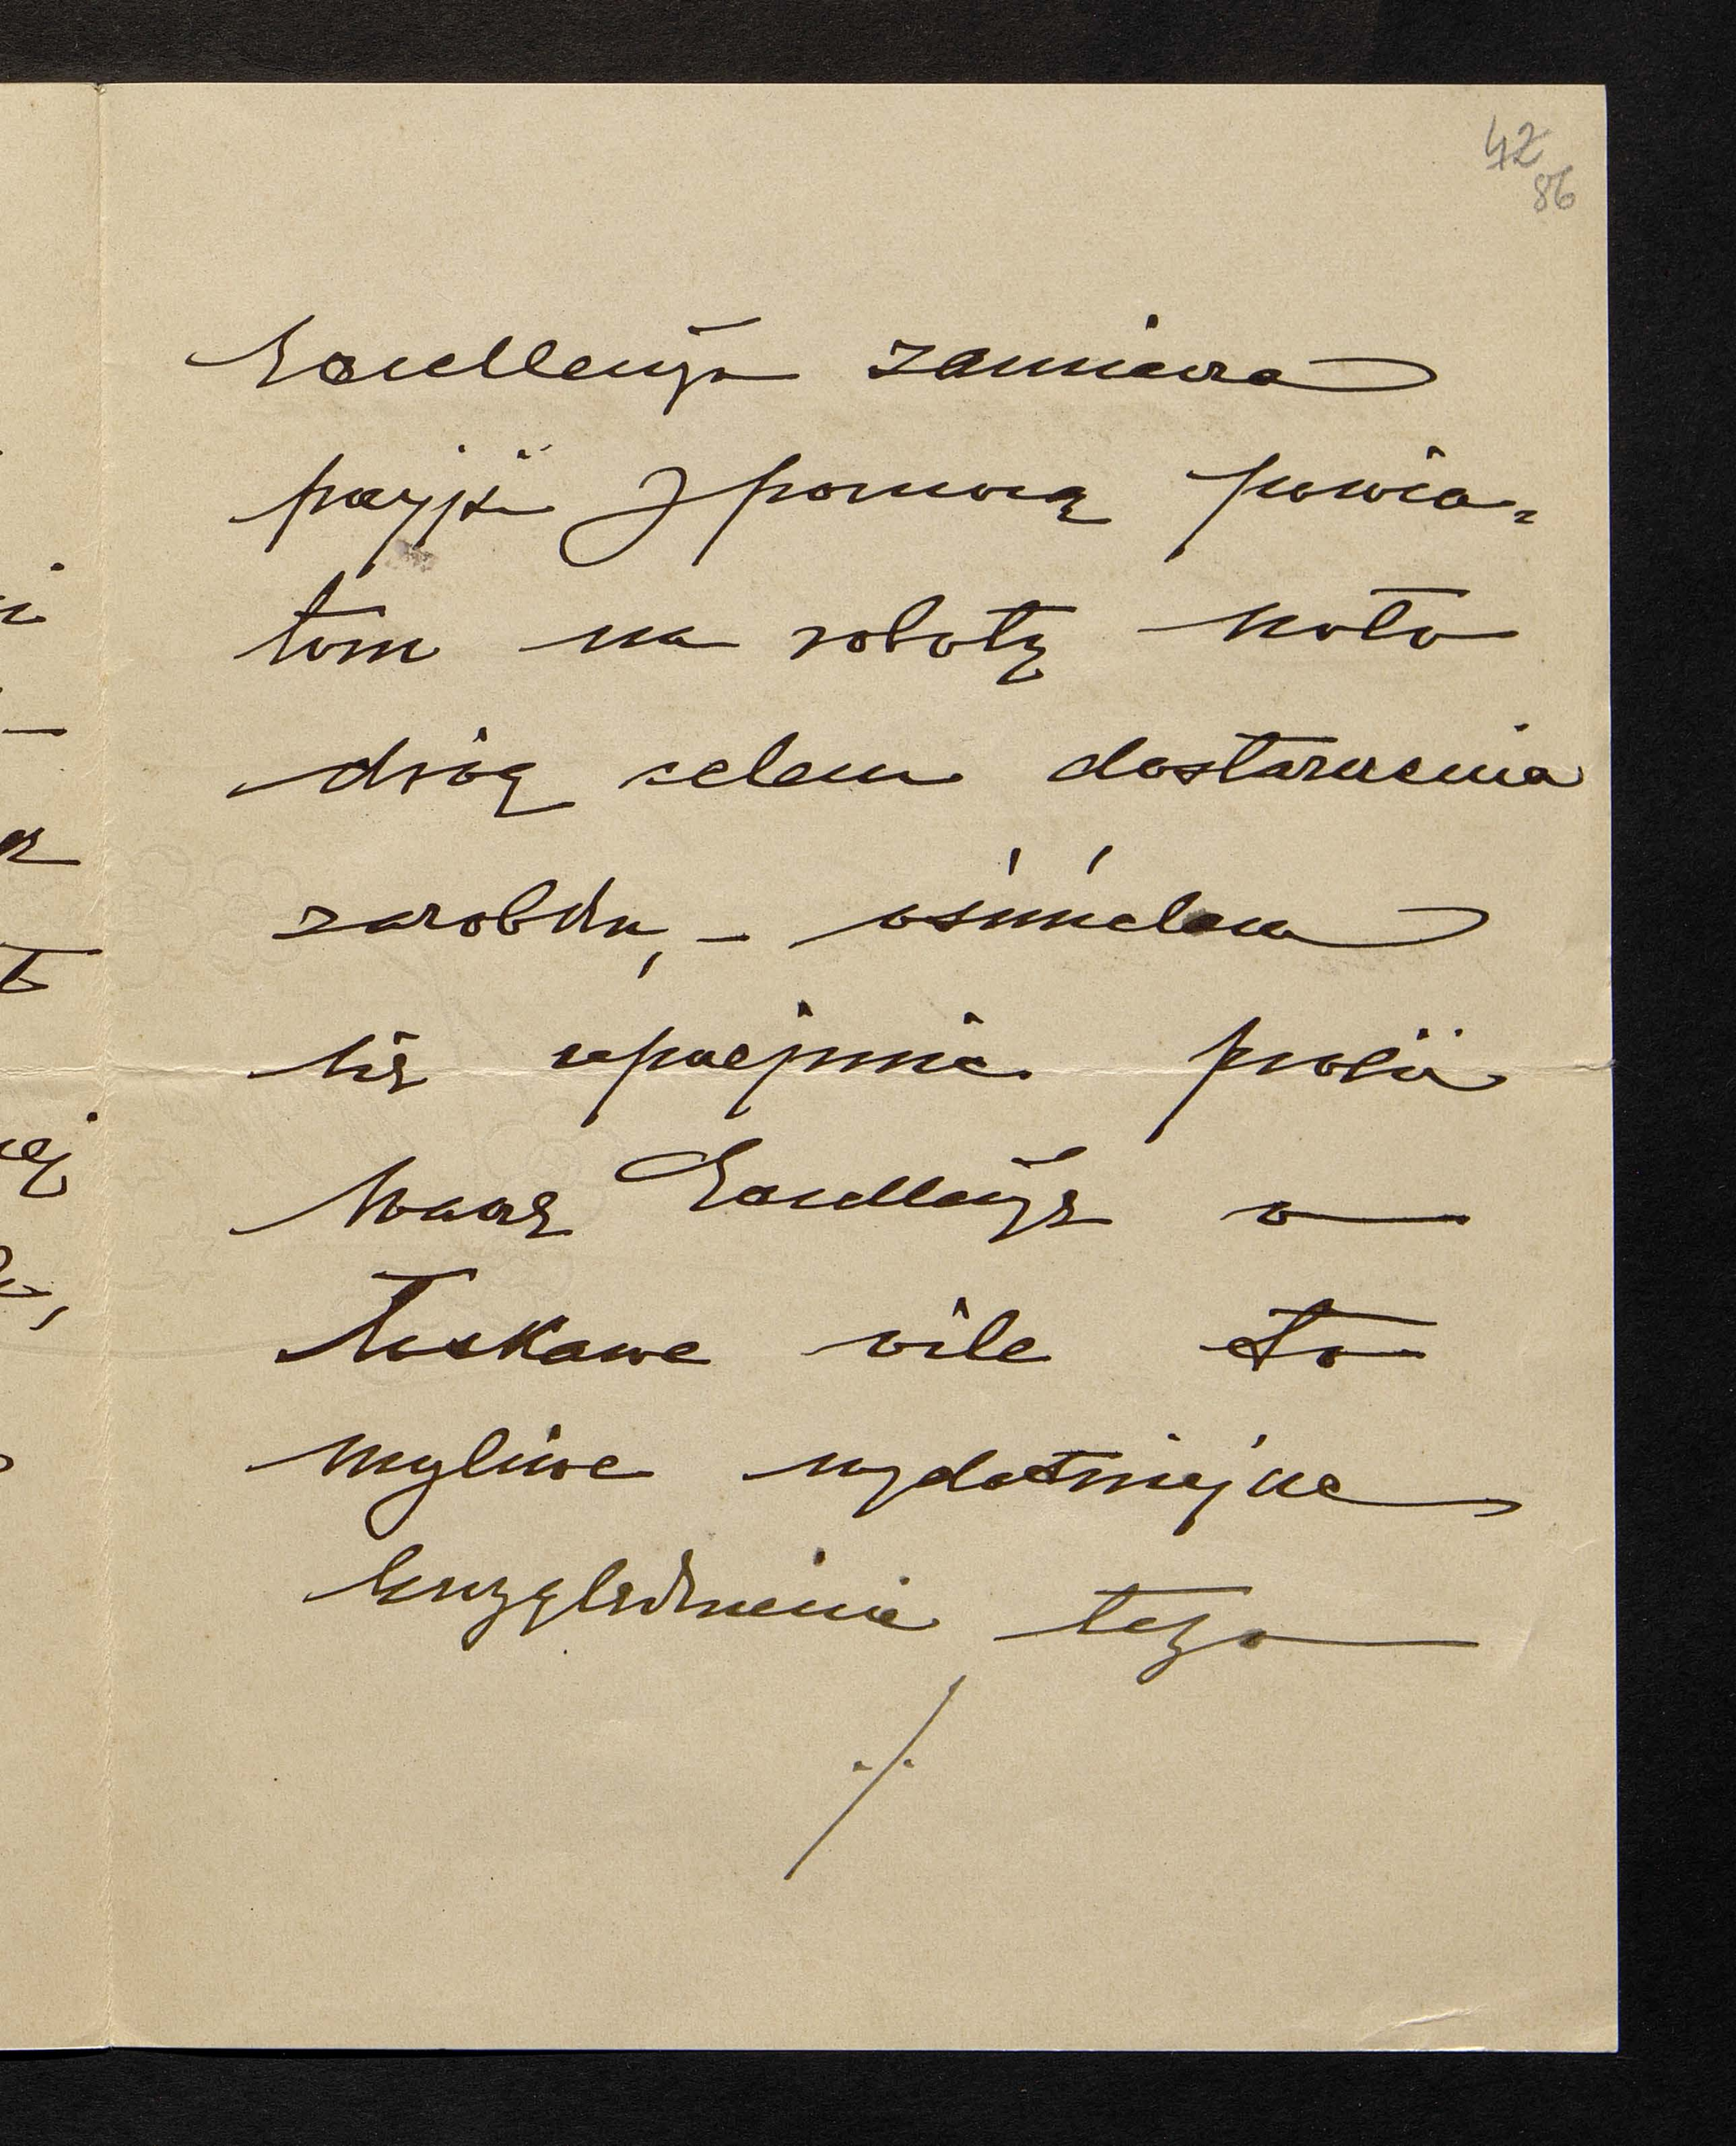 42
86
Excellencya zamierza
przyjść z pomocą powia=
tom na robotę koło
dróg celem dostarczenia
zarobku, – ośmielam
się uprzejmie prosić
Waszą Excellencyę o
łaskawe o ile to
mozliwe wydatniejsze
uwzględnienie tego
./.